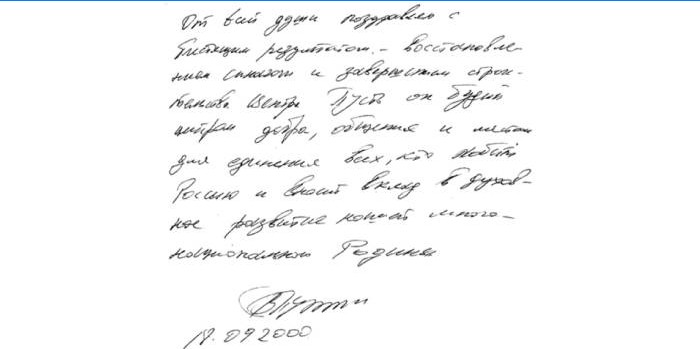 От всей души поздравляю с
блестящим результатом – восстановле-
нием синагоги и завершением строи-
тельства Центра Пусть он будет
центром добра, общения и местом
для единения всех, кто любит
Россию и вносит вклад в духов-
ное развитие нашей много-
национальной Родины
ВПутин
18.09 2000